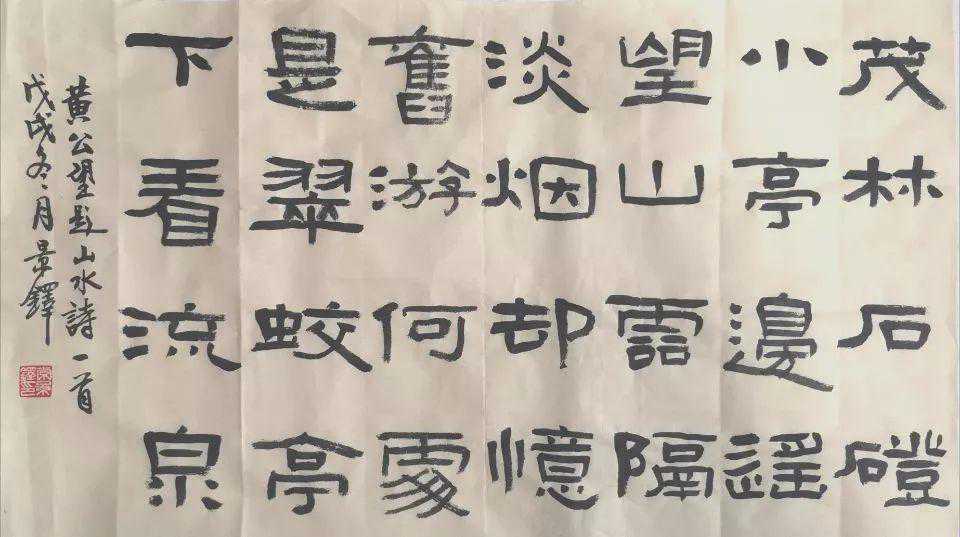 茂林石磴
小亭邊遥
望山雲隔
淡烟却憶
舊游何處
是翠蛟亭
下看流泉
黄公望題山水詩一首
戊戌冬月景鐸